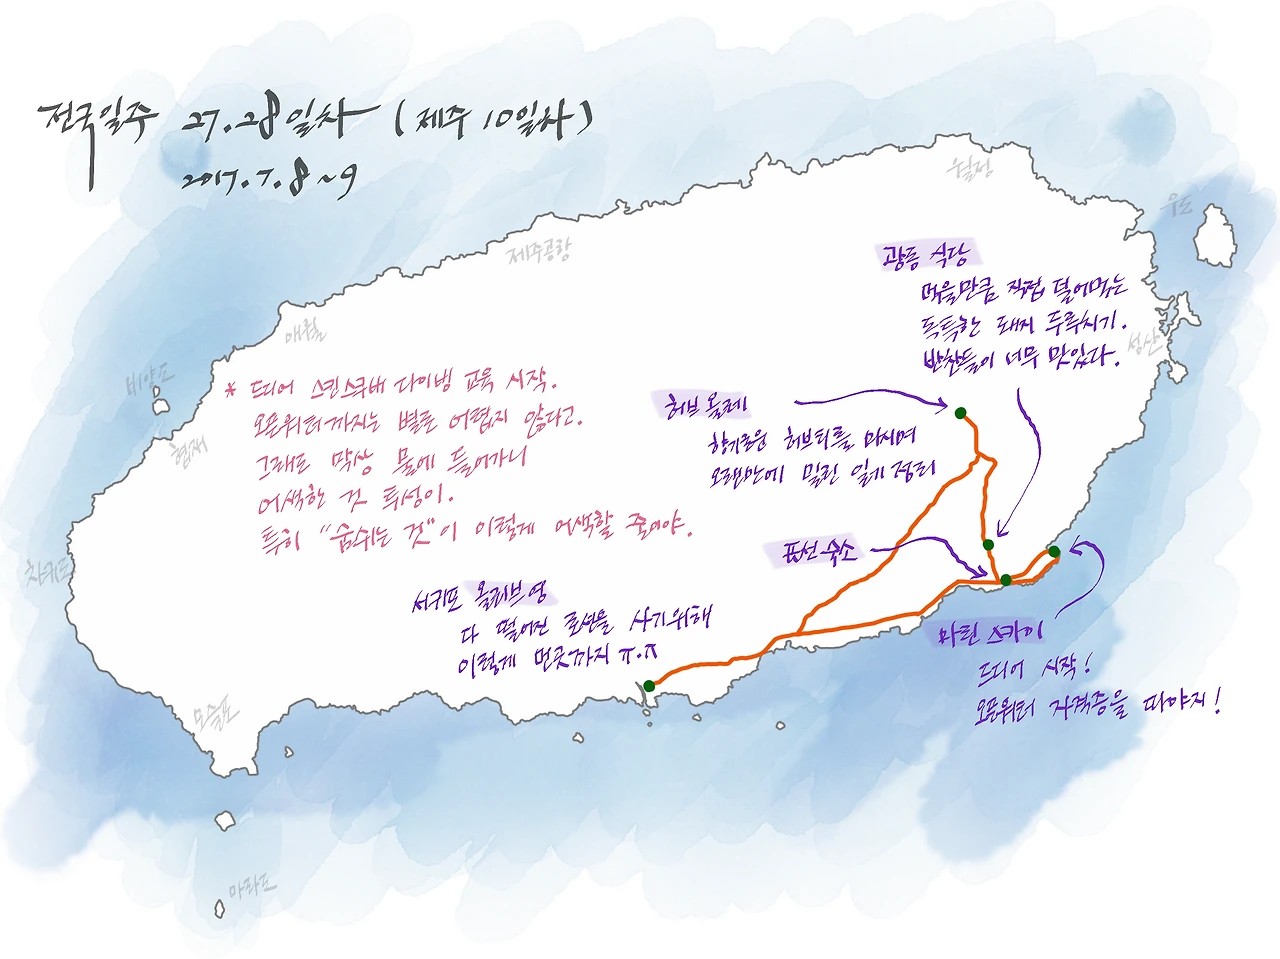 전국일주 27.28일차 (제주 10일차)
2017.7.8~9
월정
우도
제주공항
애월
비양도
협재
성산
차귀도
모슬포
마라도
광동 식당
먹을만큼 직접 덜어먹는
독특한 돼지 두루치기.
반찬들이 너무 맛있다.
* 드디어 스킨스쿠버 다이빙 교육 시작.
오픈워터까지는 별로 어렵지 않다고.
그래도 막상 물에 들어가니
어색한 것 투성이.
특히 "숨쉬는 것"이 이렇게 어색할 줄이야.
허브 올레
향기로운 허브티를 마시며
오랜만에 밀린 일기 정리
표선 숙소
서귀포 올리브영
다 떨어진 로션을 사기위해
이렇게 먼곳까지 ㅠ.ㅠ
마린 스카이
드디어 시작!
오픈워터 자격증을 따야지!